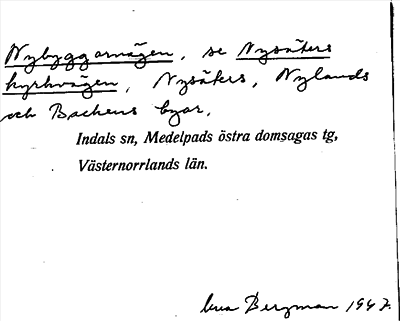 Nybyggarvägen, se Nysäters
kyrkvägen, Nysäters, Nylands
och Backens byar.
Indals sn, Medelpads östra domsagas tg,
Västernorrlands län.
Bergman 1947.